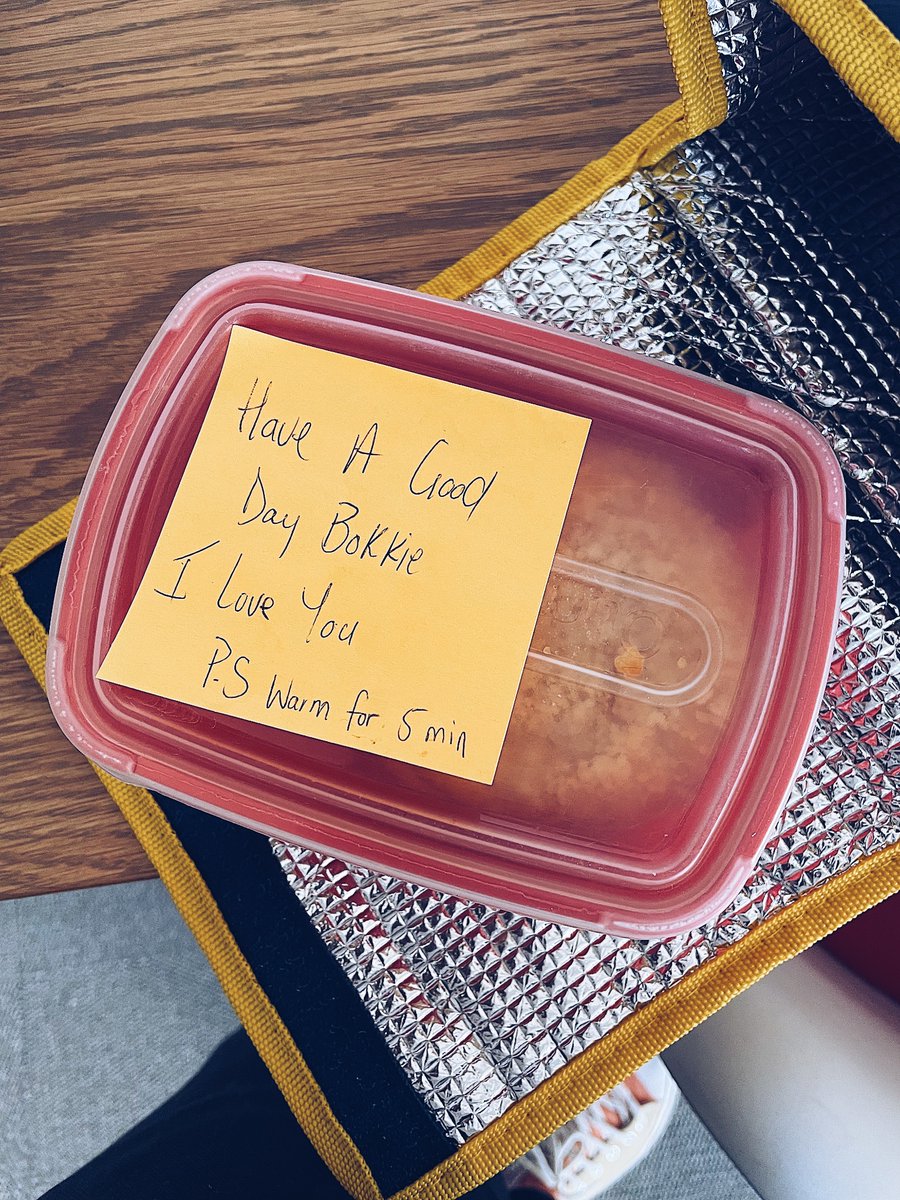 Have A Good
Day Bokkie
I Love You
P.S Warm for 5 min